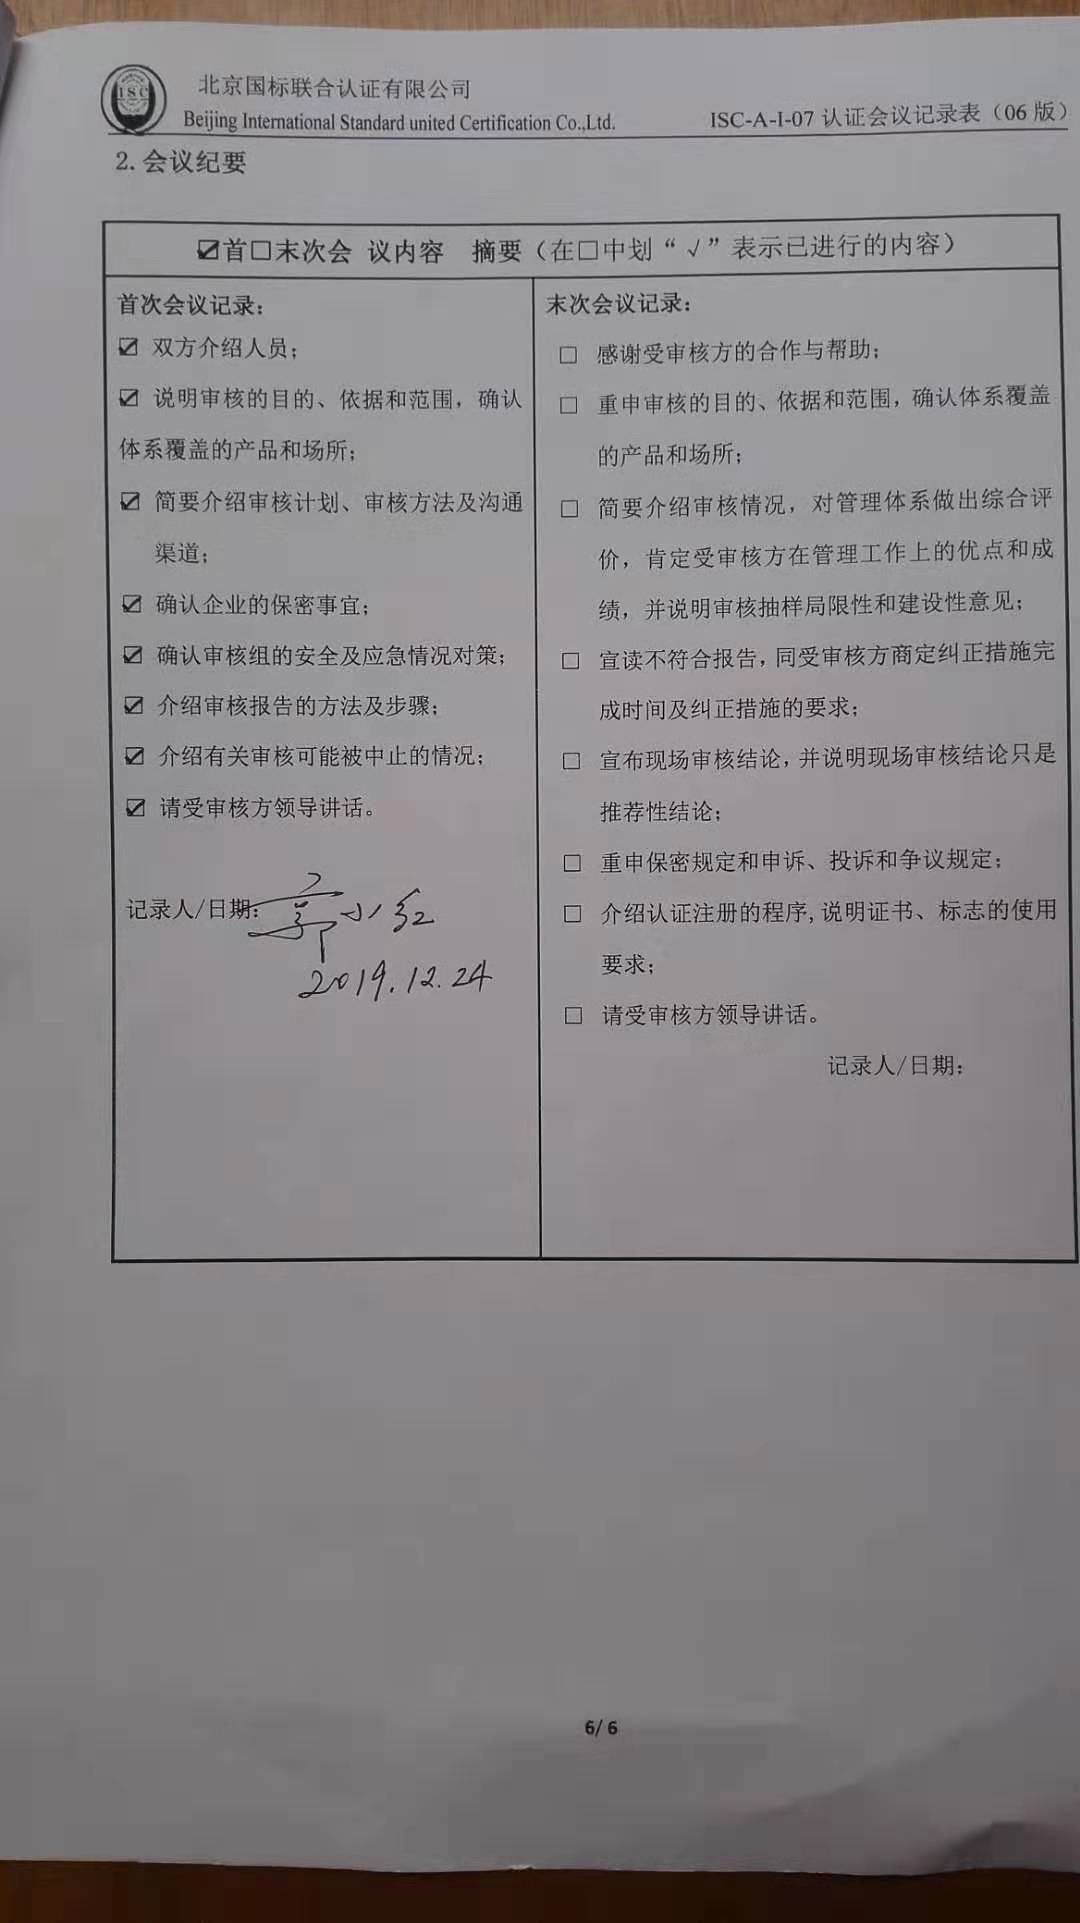 ISC
北京国标联合认证有限公司
Beijing International Standard united Certification Co.,Ltd.
ISC-A-I-07 认证会议记录表（06 版）
2. 会议纪要
☑首□末次会 议内容 摘要（在□中划“√”表示已进行的内容）
首次会议记录：
☑ 双方介绍人员；
☑ 说明审核的目的、依据和范围，确认
体系覆盖的产品和场所；
☑ 简要介绍审核计划、审核方法及沟通
渠道；
☑ 确认企业的保密事宜；
☑ 确认审核组的安全及应急情况对策；
☑ 介绍审核报告的方法及步骤；
☑ 介绍有关审核可能被中止的情况；
☑ 请受审核方领导讲话。
记录人/日期：郭小红
2019.12.24
末次会议记录：
□ 感谢受审核方的合作与帮助；
□ 重申审核的目的、依据和范围，确认体系覆盖
的产品和场所；
□ 简要介绍审核情况，对管理体系做出综合评
价，肯定受审核方在管理工作上的优点和成
绩，并说明审核抽样局限性和建设性意见；
□ 宣读不符合报告，同受审核方商定纠正措施完
成时间及纠正措施的要求；
□ 宣布现场审核结论，并说明现场审核结论只是
推荐性结论；
□ 重申保密规定和申诉、投诉和争议规定；
□ 介绍认证注册的程序，说明证书、标志的使用
要求；
□ 请受审核方领导讲话。
记录人/日期：
6/ 6